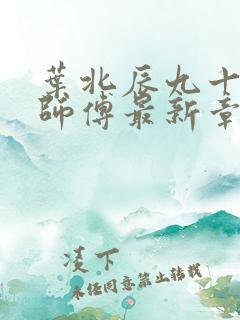 葉北辰九十
師傅最新章
凌下
未经同意禁止转载